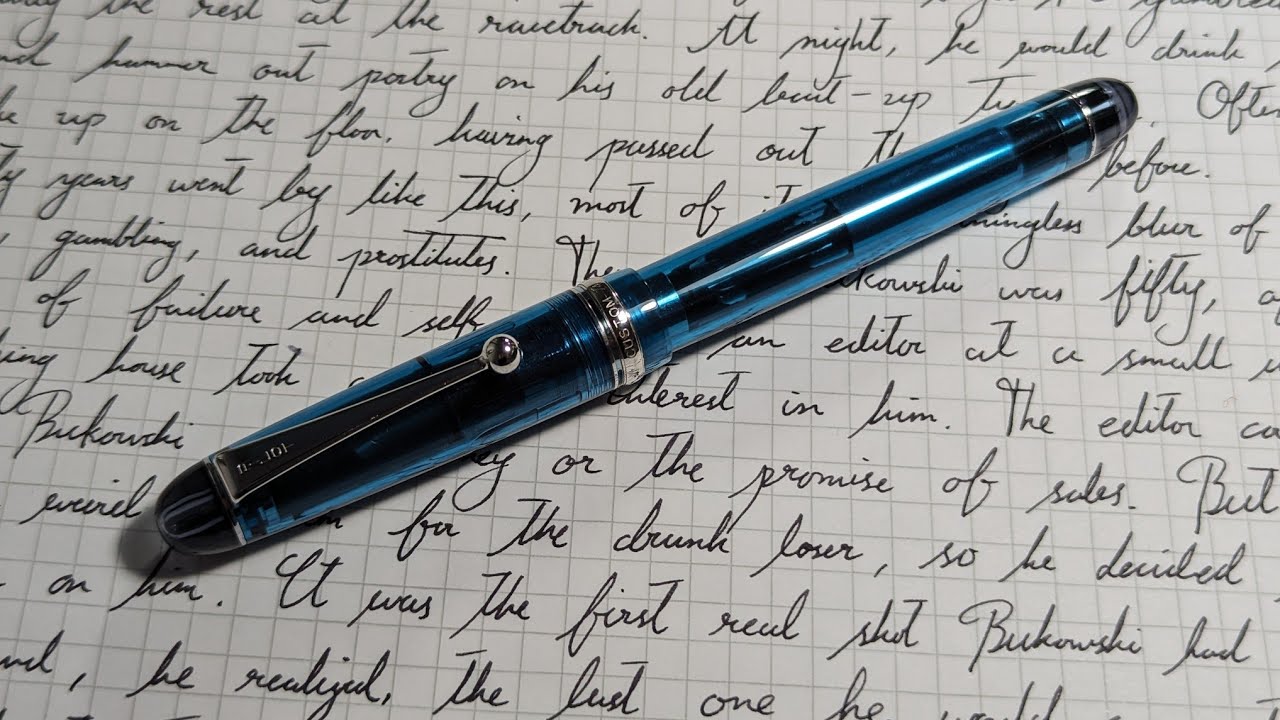 the rest at the racetrack. At night, he would drink
hammer out poetry on his old beat-up
up on the floor, having passed out before. Often
years went by like this, most of blur of
gambling, and prostitutes. was fifty,
of failure and self an editor at a small
house took interest in him. The editor
Bukowski or the promise of sales. But
weird for the drunk loser, so he decided
on him. It was the first real shot Bukowski had
he realized, the last one he would
CUSTOM
PILOT